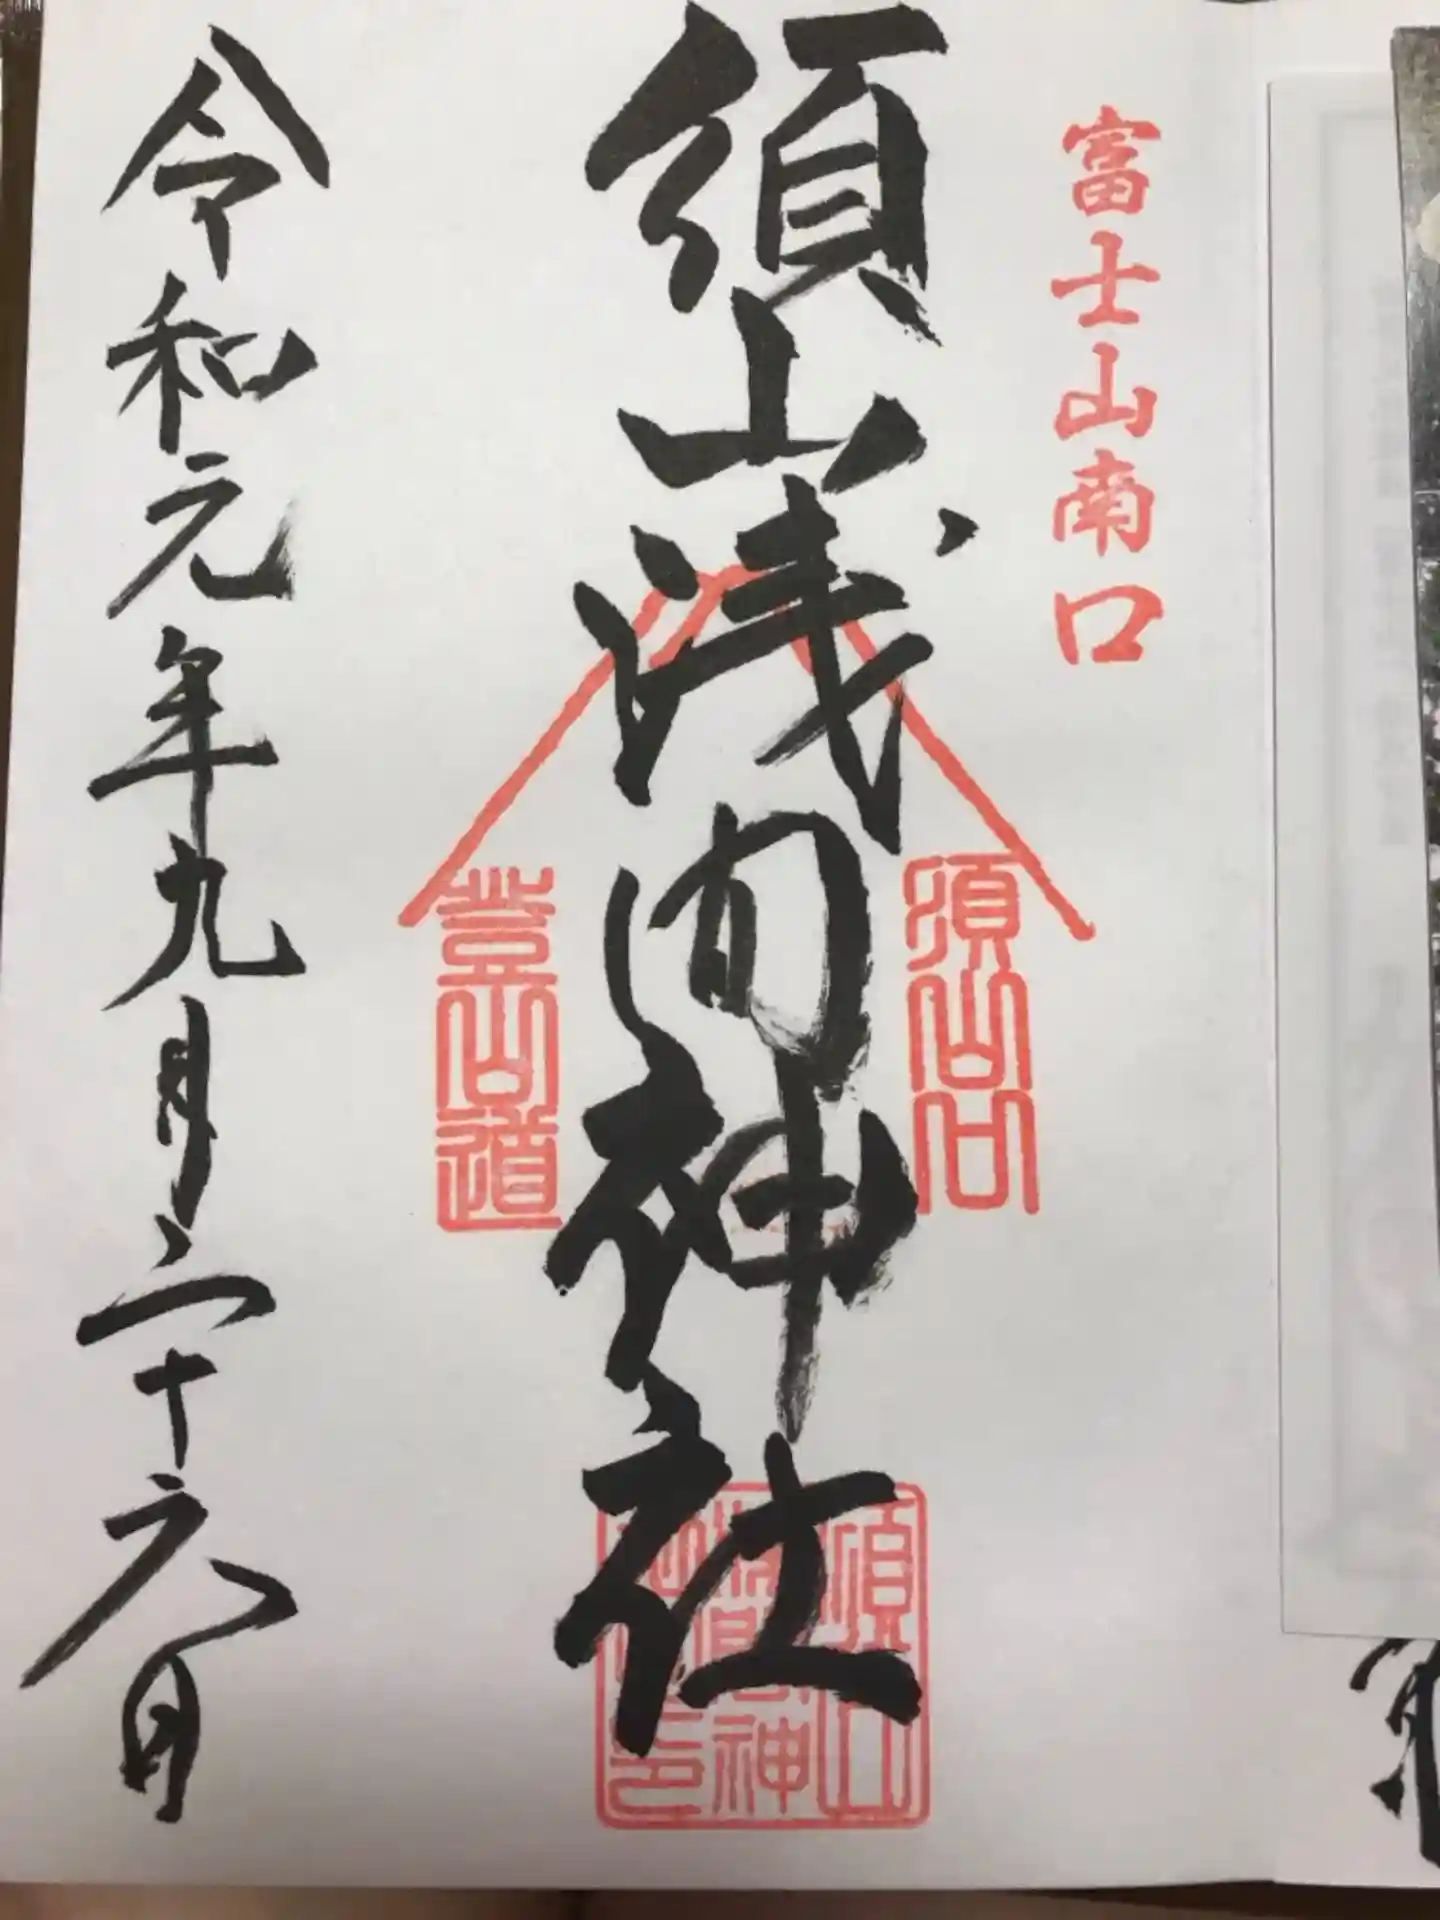 富士山南口
須山浅間神社
須山口
登山道
令和元年九月二十六日